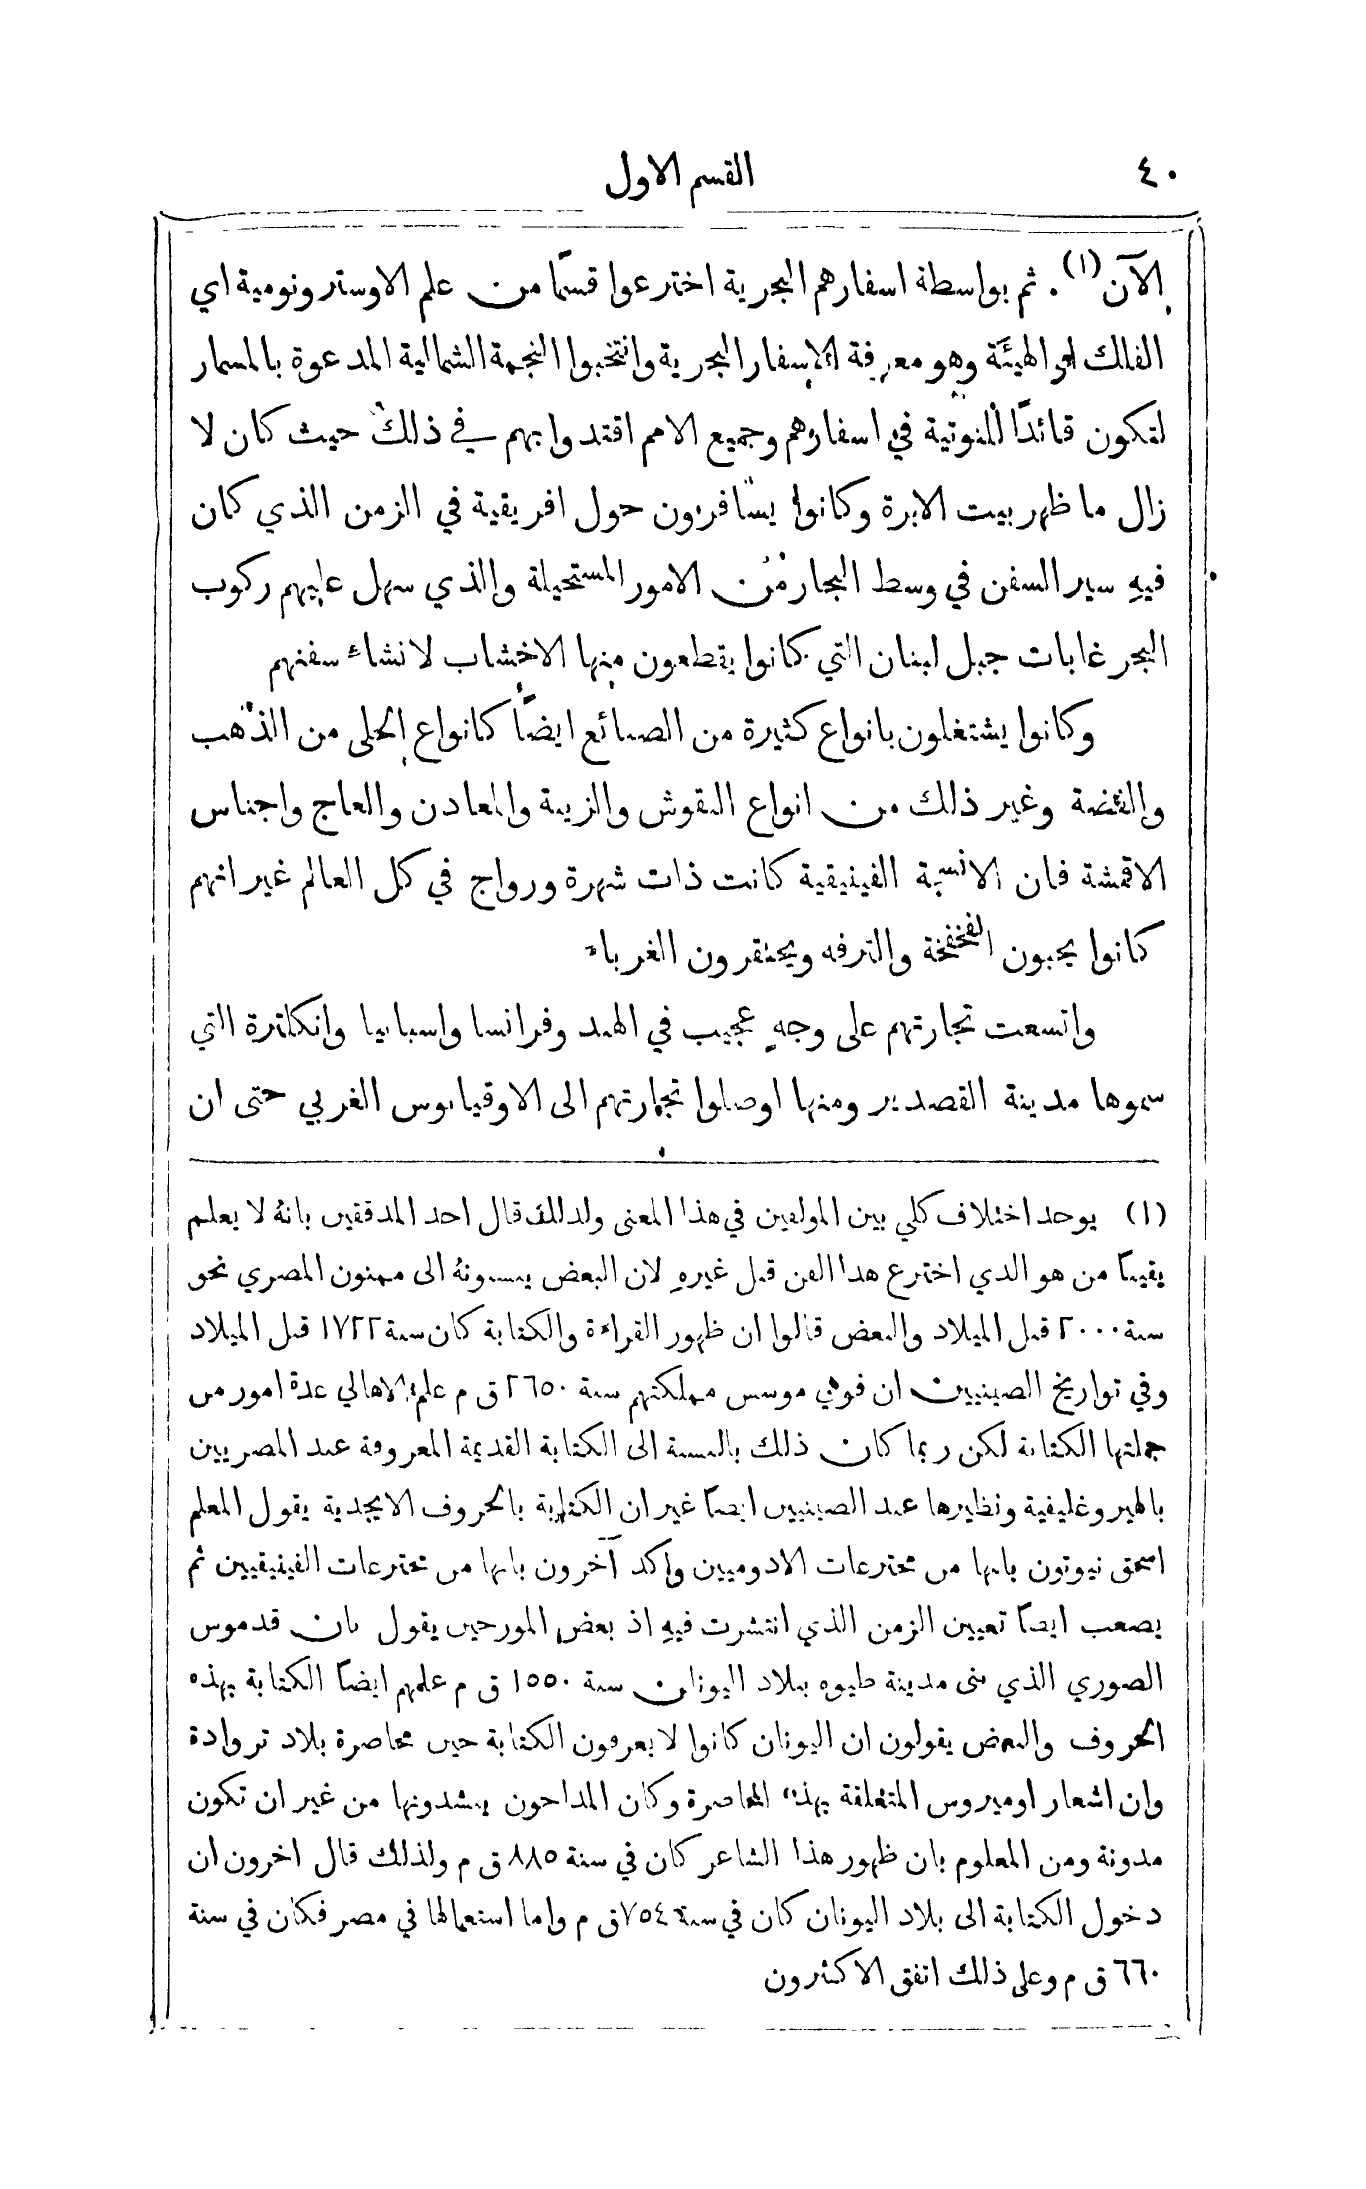 ٤٠
القسم الاول
الآن (١). ثم بواسطة اسفارهم البحرية اخترعوا قسمًا من علم الاوسترونومية اي
الفلك او الهيئة وهو معرفة الاسفار البحرية وانتخبوا النجمة الشمالية المدعوة بالمسمار
لتكون قائدًا للنوتية في اسفارهم وجميع الامم اقتدوا بهم في ذلك حيث كان لا
زال ما ظهر بيت الابرة وكانوا يسافرون حول افريقية في الزمن الذي كان
فيهِ سير السفن في وسط البحار من الامور المستحيلة والذي سهل عليهم ركوب
البحر غابات جبل لبنان التي كانوا يقطعون منها الاخشاب لانشاء سفنهم
وكانوا يشتغلون بانواع كثيرة من الصنائع ايضًا كانواع الحلى من الذهب
والفضة وغير ذلك من انواع النقوش والزينة والمعادن والعاج واجناس
الاقمشة فان الانسجة الفينيقية كانت ذات شهرة ورواج في كل العالم غير انهم
كانوا يحبون الفخفخة والترفه ويحتقرون الغرباء
واتسعت تجارتهم على وجهٍ عجيب في الهند وفرانسا واسبانيا وانكلترة التي
سموها مدينة القصدير ومنها اوصلوا تجارتهم الى الاوقيانوس الغربي حتى ان
(١) يوجد اختلاف كلي بين المولفين في هذا المعنى ولذلك قال احد المدققين بانهُ لا يعلم
يقينًا من هو الذي اخترع هذا الفن قبل غيرهِ لان البعض ينسبونهُ الى ممنون المصري نحو
سنة ٢٠٠٠ قبل الميلاد والبعض قالوا ان ظهور القراءة والكتابة كان سنة ١٧٢٢ قبل الميلاد
وفي تواريخ الصينيين ان فوهي موسس مملكتهم سنة ٢٦٥٠ ق م علم الاهالي عدة امور من
جملتها الكتابة لكن ربما كان ذلك بالنسبة الى الكتابة القديمة المعروفة عند المصريين
بالهيروغليفية ونظيرها عند الصينيين ايضًا غير ان الكتابة بالحروف الابجدية يقول المعلم
اسحق نيوتون بانها من مخترعات الادوميين واكد آخرون بانها من مخترعات الفينيقيين ثم
يصعب ايضًا تعيين الزمن الذي انتشرت فيهِ اذ بعض المورخين يقول بان قدموس
الصوري الذي بنى مدينة طيوه ببلاد اليونان سنة ١٥٥٠ ق م علمهم ايضًا الكتابة بهذه
الحروف والبعض يقولون ان اليونان كانوا لا يعرفون الكتابة حين محاصرة بلاد تروادة
وان اشعار اوميروس المتعلقة بهذه المحاصرة وكان المداحون ينشدونها من غير ان تكون
مدونة ومن المعلوم بان ظهور هذا الشاعر كان في سنة ٨٨٥ ق م ولذلك قال اخرون ان
دخول الكتابة الى بلاد اليونان كان في سنة ٧٥٤ ق م واما استعمالها في مصر فكان في سنة
٦٦٠ ق م وعلى ذلك اتفق الاكثرون